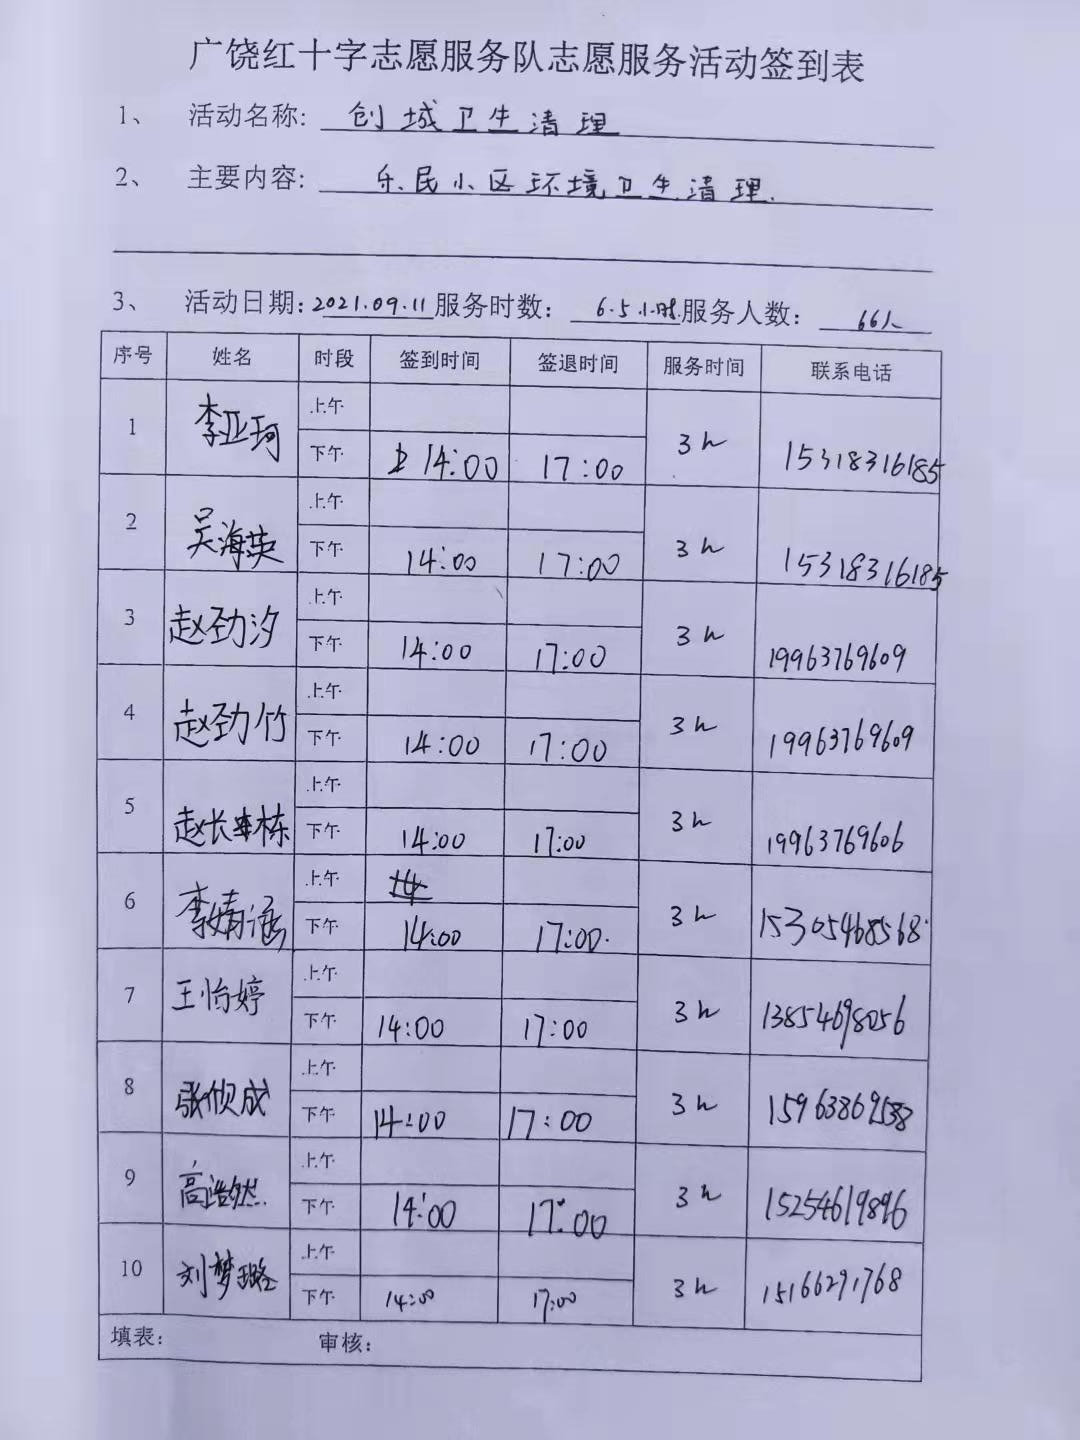 广饶红十字志愿服务队志愿服务活动签到表
1、 活动名称: 创城卫生清理
2、 主要内容: 乐民小区环境卫生清理.
3、 活动日期: 2021.09.11 服务时数: 6.5小时. 服务人数: 66人
序号 姓名 时段 签到时间 签退时间 服务时间 联系电话
1 李亚珂 上午 3h 15318316185
下午 14:00 17:00
2 吴海英 上午 3h 15318316185
下午 14:00 17:00
3 赵劲汐 上午 3h 19963769609
下午 14:00 17:00
4 赵劲竹 上午 3h 19963769609
下午 14:00 17:00
5 赵长栋 上午 3h 19963769606
下午 14:00 17:00
6 李婧涵 上午 14 3h 15305468568
下午 14:00 17:00
7 王怡婷 上午 3h 13854698056
下午 14:00 17:00
8 上午 3h
下午 14:00 17:00
9 高浩然 上午 3h 15254619896
下午 14:00 17:00
10 刘梦璐 上午 3h 15166291768
下午 14:00 17:00
填表: 审核: